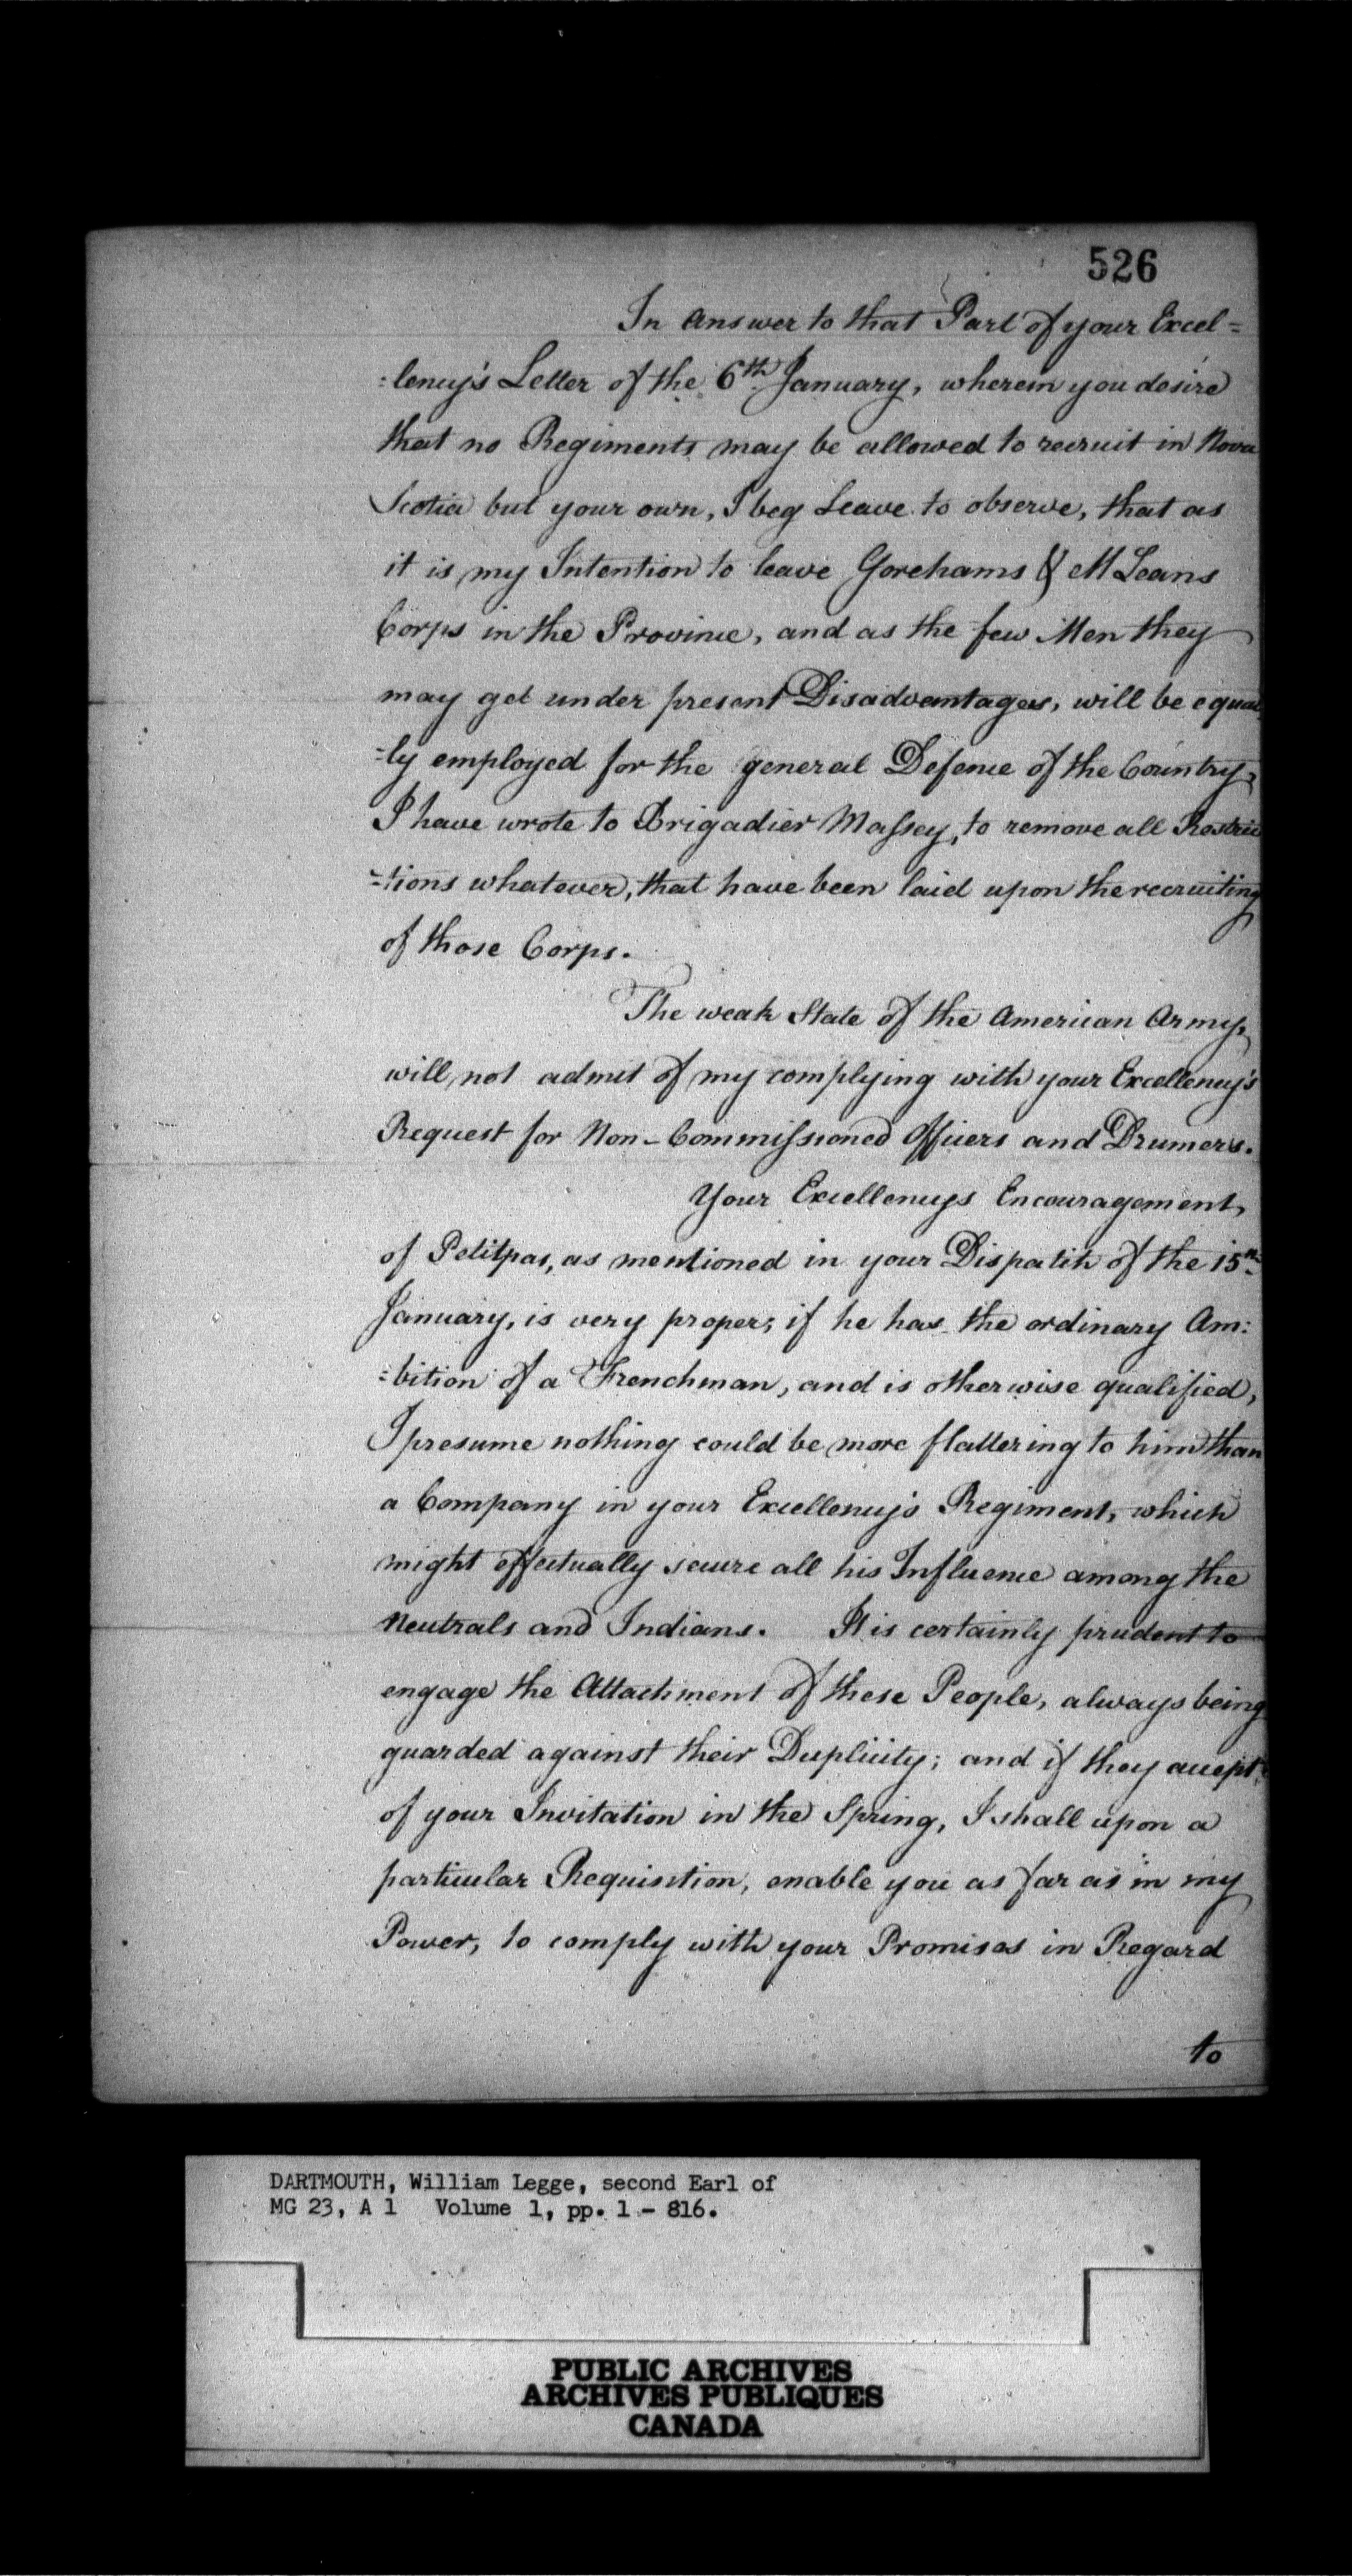 526
In Answer to that Part of your Excel=
:lency's Letter of the 6th January, wherein you desire
that no Regiments may be allowed to recruit in Nova
Scotia but your own, I beg Leave to observe, that as
it is my Intention to leave Gorehams & McLeans
Corps in the Province, and as the few Men they
may get under present Disadvantages, will be equal
-ly employed for the general Defence of the Country,
I have wrote to Brigadier Massey, to remove all Restric
-tions whatever, that have been laid upon the recruiting
of those Corps.
The weak State of the American Army,
will not admit of my complying with your Excellency's
Request for Non-Commissioned Officers and Drumers.
Your Excellencys Encouragement,
of Petitpas, as mentioned in your Dispatch of the 15th
January, is very proper; if he has the ordinary Am:
:bition of a Frenchman, and is otherwise qualified,
I presume nothing could be more flattering to him than
a Company in your Excellency's Regiment, which
might effectually secure all his Influence among the
Neutrals and Indians. It is certainly prudent to
engage the Attachment of these People, always being
guarded against their Duplicity; and if they accept
of your Invitation in the Spring, I shall upon a
particular Requisition, enable you as far as in my
Power, to comply with your Promises in Regard
to
DARTMOUTH, William Legge, second Earl of
MG 23, A 1 Volume 1, pp. 1 - 816.
PUBLIC ARCHIVES
ARCHIVES PUBLIQUES
CANADA